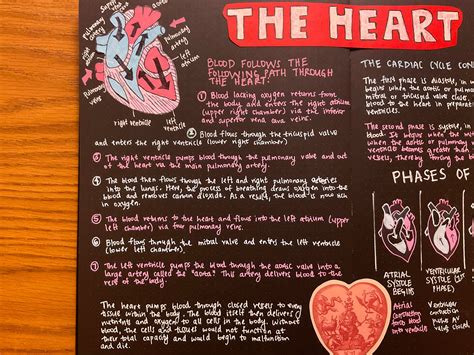 THE HEART
pulmonary artery
right atrium
pulmonary veins
right ventricle
left ventricle
pulmonary artery
left atrium
BLOOD FOLLOWS THE
FOLLOWING PATH THROUGH
THE HEART:
① Blood lacking oxygen returns from
the body and enters the right atrium
(upper right chamber) via the inferior
and superior vena cava veins.
② Blood flows through the tricuspid valve
and enters the right ventricle (lower right chamber)
③ The right ventricle pumps blood through the pulmonary valve and out
of the heart via the main pulmonary artery.
④ The blood then flows through the left and right pulmonary arteries
into the lungs. Here, the process of breathing draws oxygen into the
blood and removes carbon dioxide. As a result, the blood is now rich
in oxygen.
⑤ The blood returns to the heart and flows into the left atrium (upper
left chamber) via four pulmonary veins.
⑥ Blood flows through the mitral valve and enters the left ventricle
(lower left chamber).
⑦ The left ventricle pumps the blood through the aortic valve into a
large artery called the "aorta". This artery delivers blood to the rest
of the body.
The heart pumps blood through closed vessels to every
tissue within the body. The blood itself then delivers
nutrients and oxygen to all cells in the body. Without
blood, the cells and tissues would not function at
their total capacity and would begin to malfunction
and die.
THE CARDIAC CYCLE CON
The first phase is diastole, in
begins when the aortic or pulmonary
mitral or tricuspid valve close
blood to the heart in preparation
ventricles.
The second phase is systole, in
blood. It begins when the
when the aortic or pulmonary
ventricle becomes greater than
vessels, thereby forcing the
PHASES OF
ATRIAL
SYSTOLE
BEGINS
Atria
contracting
force blood
into ventricle
VENTRICULAR
SYSTOLE (1ST
PHASE)
Ventricular
contraction
AV
closed